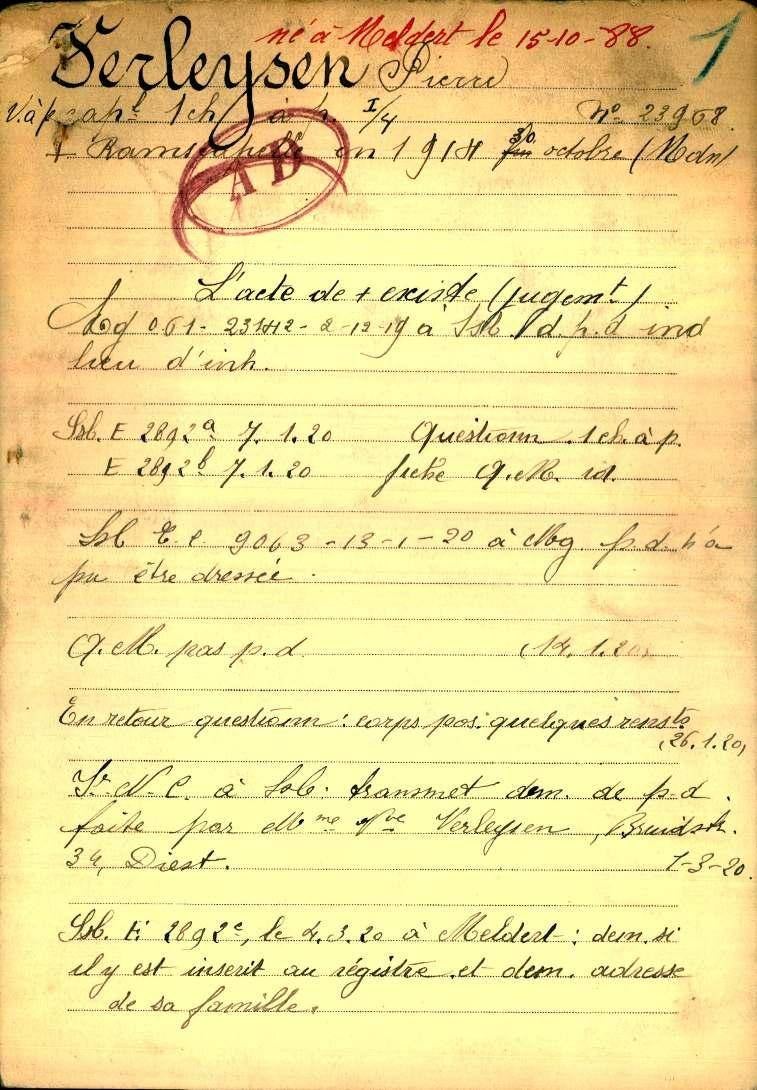 né à Meldert le 15-10-88.
1
Verleysen Pierre
1 ch à p. I/4 No 23968.
+ Ramscapelle en 1914 30 octobre (Mdn)
AB
L'acte de + existe (jugemt)
Mg 061- 2-12-19 à Ssb p.d ind
lieu d'inh.
Ssb. E 2892a 7.1.20 Questionn. 1 ch. à p.
E 2892b 7.1.20 fiche Q.M. id.
Ssb E.C. 9063 -13-1-20 à Mg. p.d. n'a
pu être dressée.
Q.M. pas p.d (14.1.20)
En retour questionn: corps pos. quelques rensts
(26.1.20)
à Ssb: transmet dem. de p.d.
faite par Mme Vve Verleysen, Bruidstr.
34, Diest. 1-3-20.
Ssb. E 2892c, le 4.3.20 à Meldert: dem. si
il y est inscrit au régistre et dem. adresse
de sa famille.